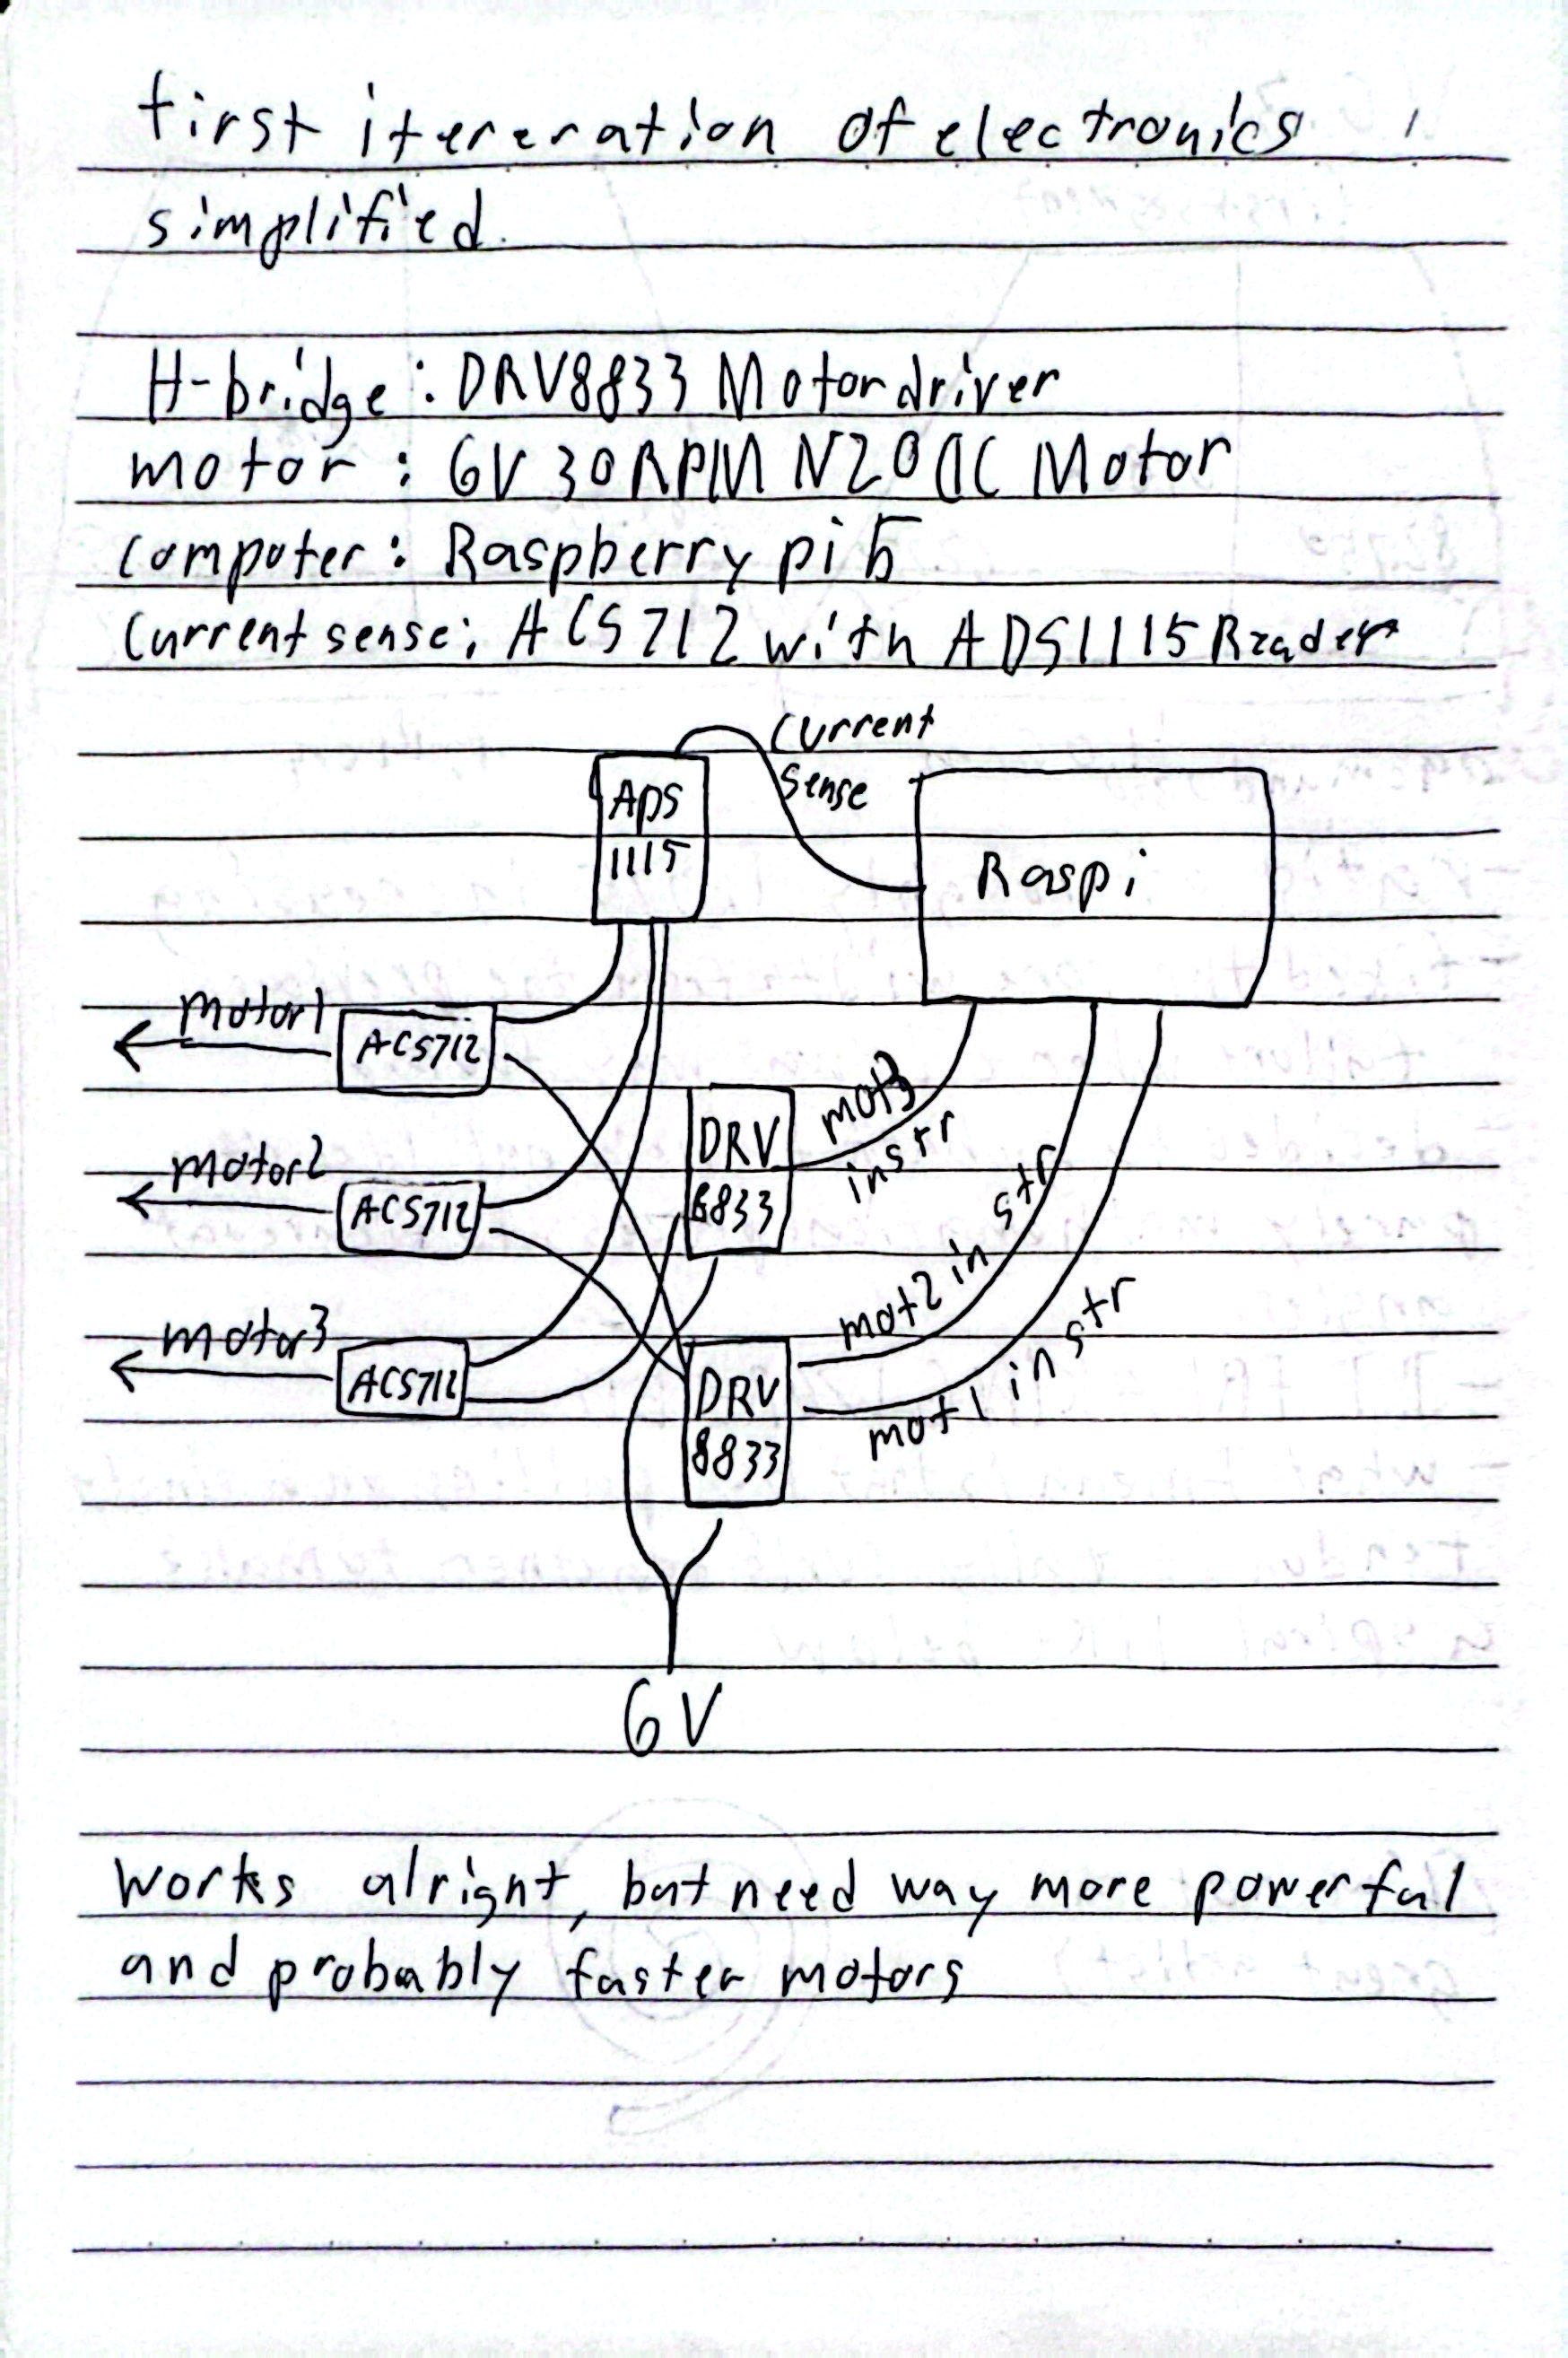 first itereration of electronics
simplified.
H-bridge: DRV8833 Motordriver
motor: 6V 30RPM N20 DC Motor
computer: Raspberry pi 5
Current sense: ACS712 with ADS1115 Reader
current
sense
ADS
1115
Raspi
motor1
ACS712
motor2
ACS712
motor3
ACS712
DRV
8833
mot3
instr
DRV
8833
mot2 in str
mot1 in str
6V
Works alright, but need way more powerful
and probably faster motors